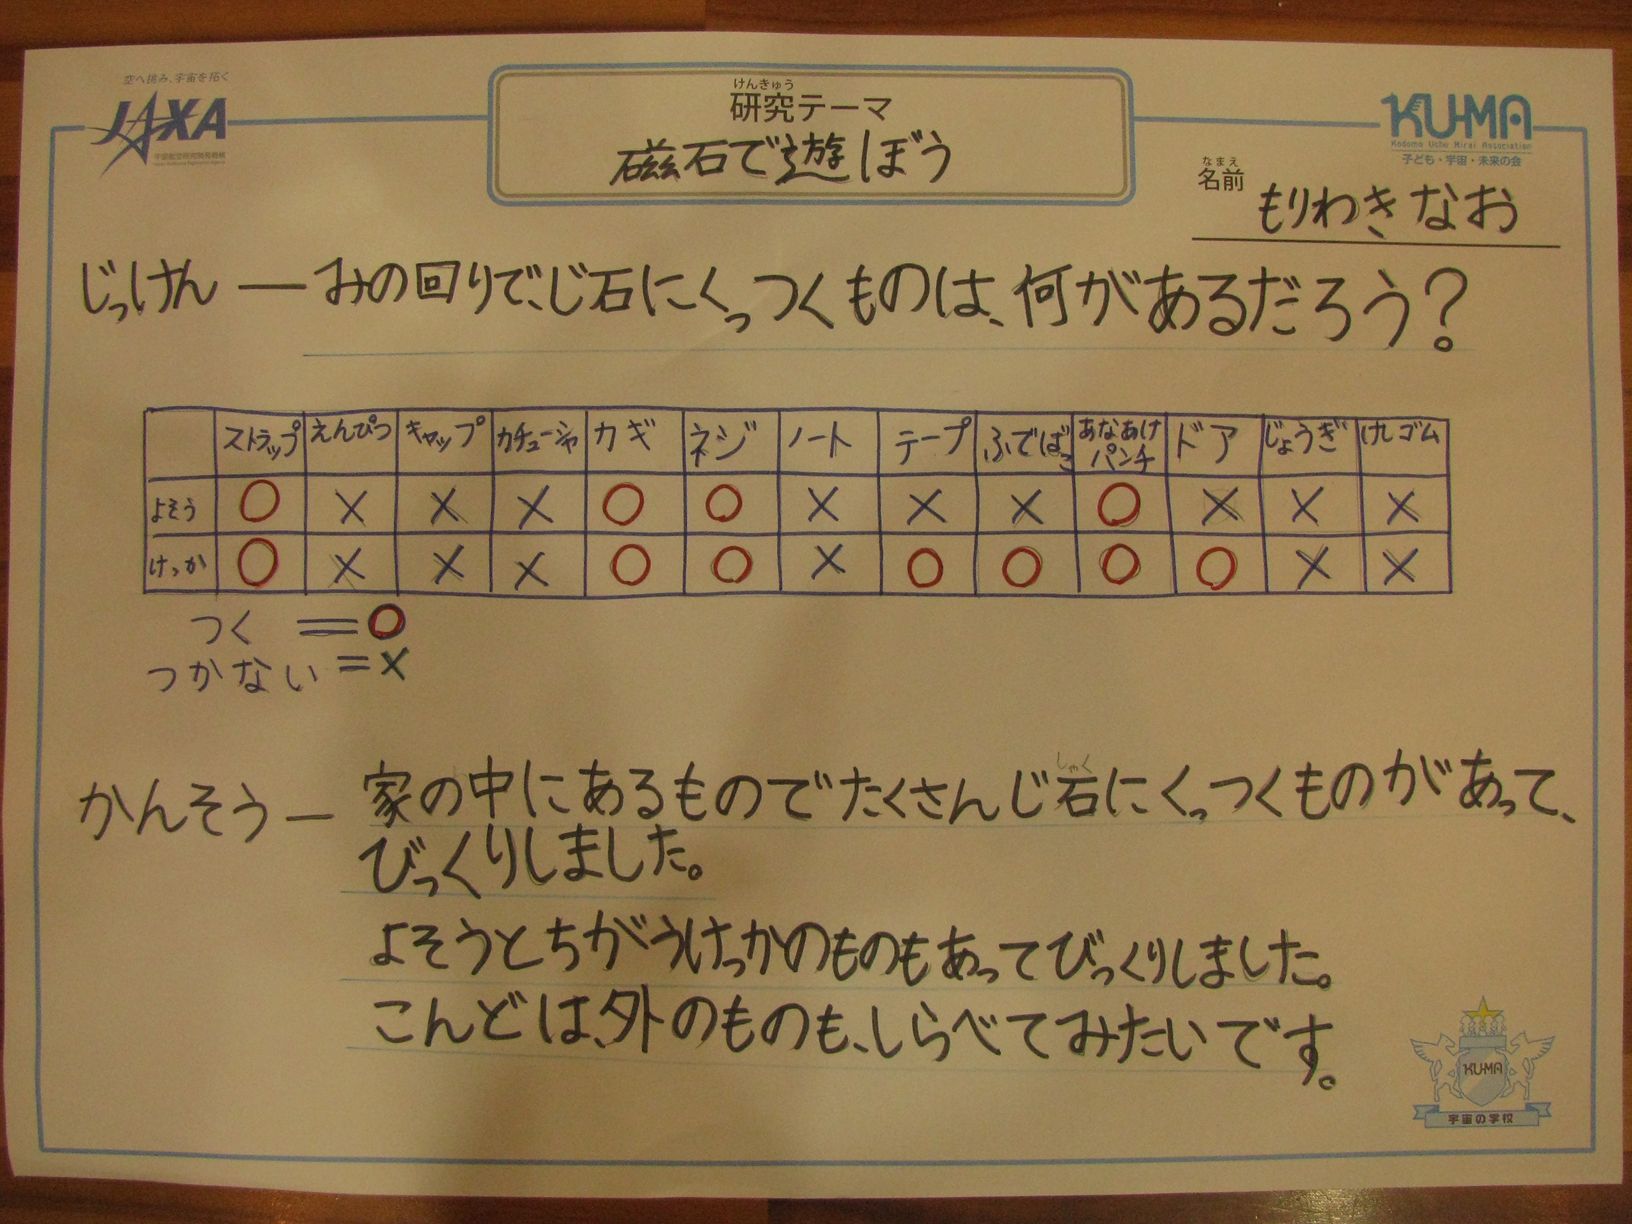 空へ挑み、宇宙を拓く
JAXA
宇宙航空研究開発機構
Japan Aerospace Exploration Agency
けんきゅう
研究テーマ
磁石で遊ぼう
KU-MA
Kodomo Uchu Mirai Association
子ども・宇宙・未来の会
なまえ
名前 もりわき なお
じっけん ― みの回りで、じ石にくっつくものは、何があるだろう?
ストラップ えんぴつ キャップ カチューシャ カギ ネジ ノート テープ ふでばこ あなあけパンチ ドア じょうぎ けしゴム
よそう ○ × × × ○ ○ × × × ○ × × ×
けっか ○ × × × ○ ○ × ○ ○ ○ ○ × ×
つく = ○
つかない = ×
しゃく
かんそう ― 家の中にあるものでたくさんじ石にくっつくものがあって、
びっくりしました。
よそうとちがうけっかのものもあってびっくりしました。
こんどは、外のものも、しらべてみたいです。
KU-MA
宇宙の学校